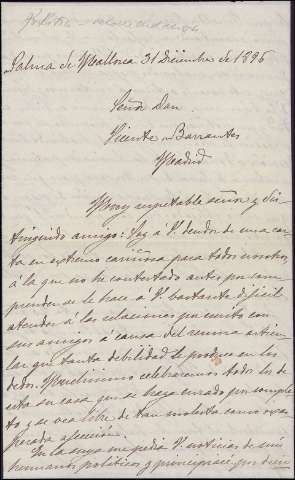 Palma de Mallorca 31 Diciembre de 1896
Señor Don
Vicente Barrantes
Madrid
Muy respetable señor y dis-
tinguido amigo: Soy á V. deudor de una car-
ta en extremo cariñosa para todos nosotros
á la que no he contestado antes por com-
prender se le hace á V. bastante difícil
atender á las relaciones por escrito con
sus amigos á causa del reuma articu-
lar que tanta debilidad le produce en los
dedos. Muchísimo celebraremos todos los de
esta su casa que se haya curado por comple-
to y se vea libre de tan molesta como
pesada afección.
En la suya me pedía V. noticias de mis
hermanos políticos y principiaré por decir